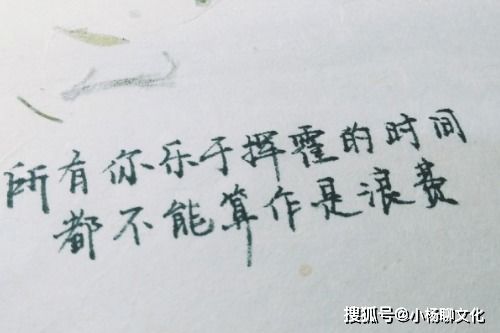 所有你乐于挥霍的时间
都不能算作是浪费
搜狐号@小杨聊文化